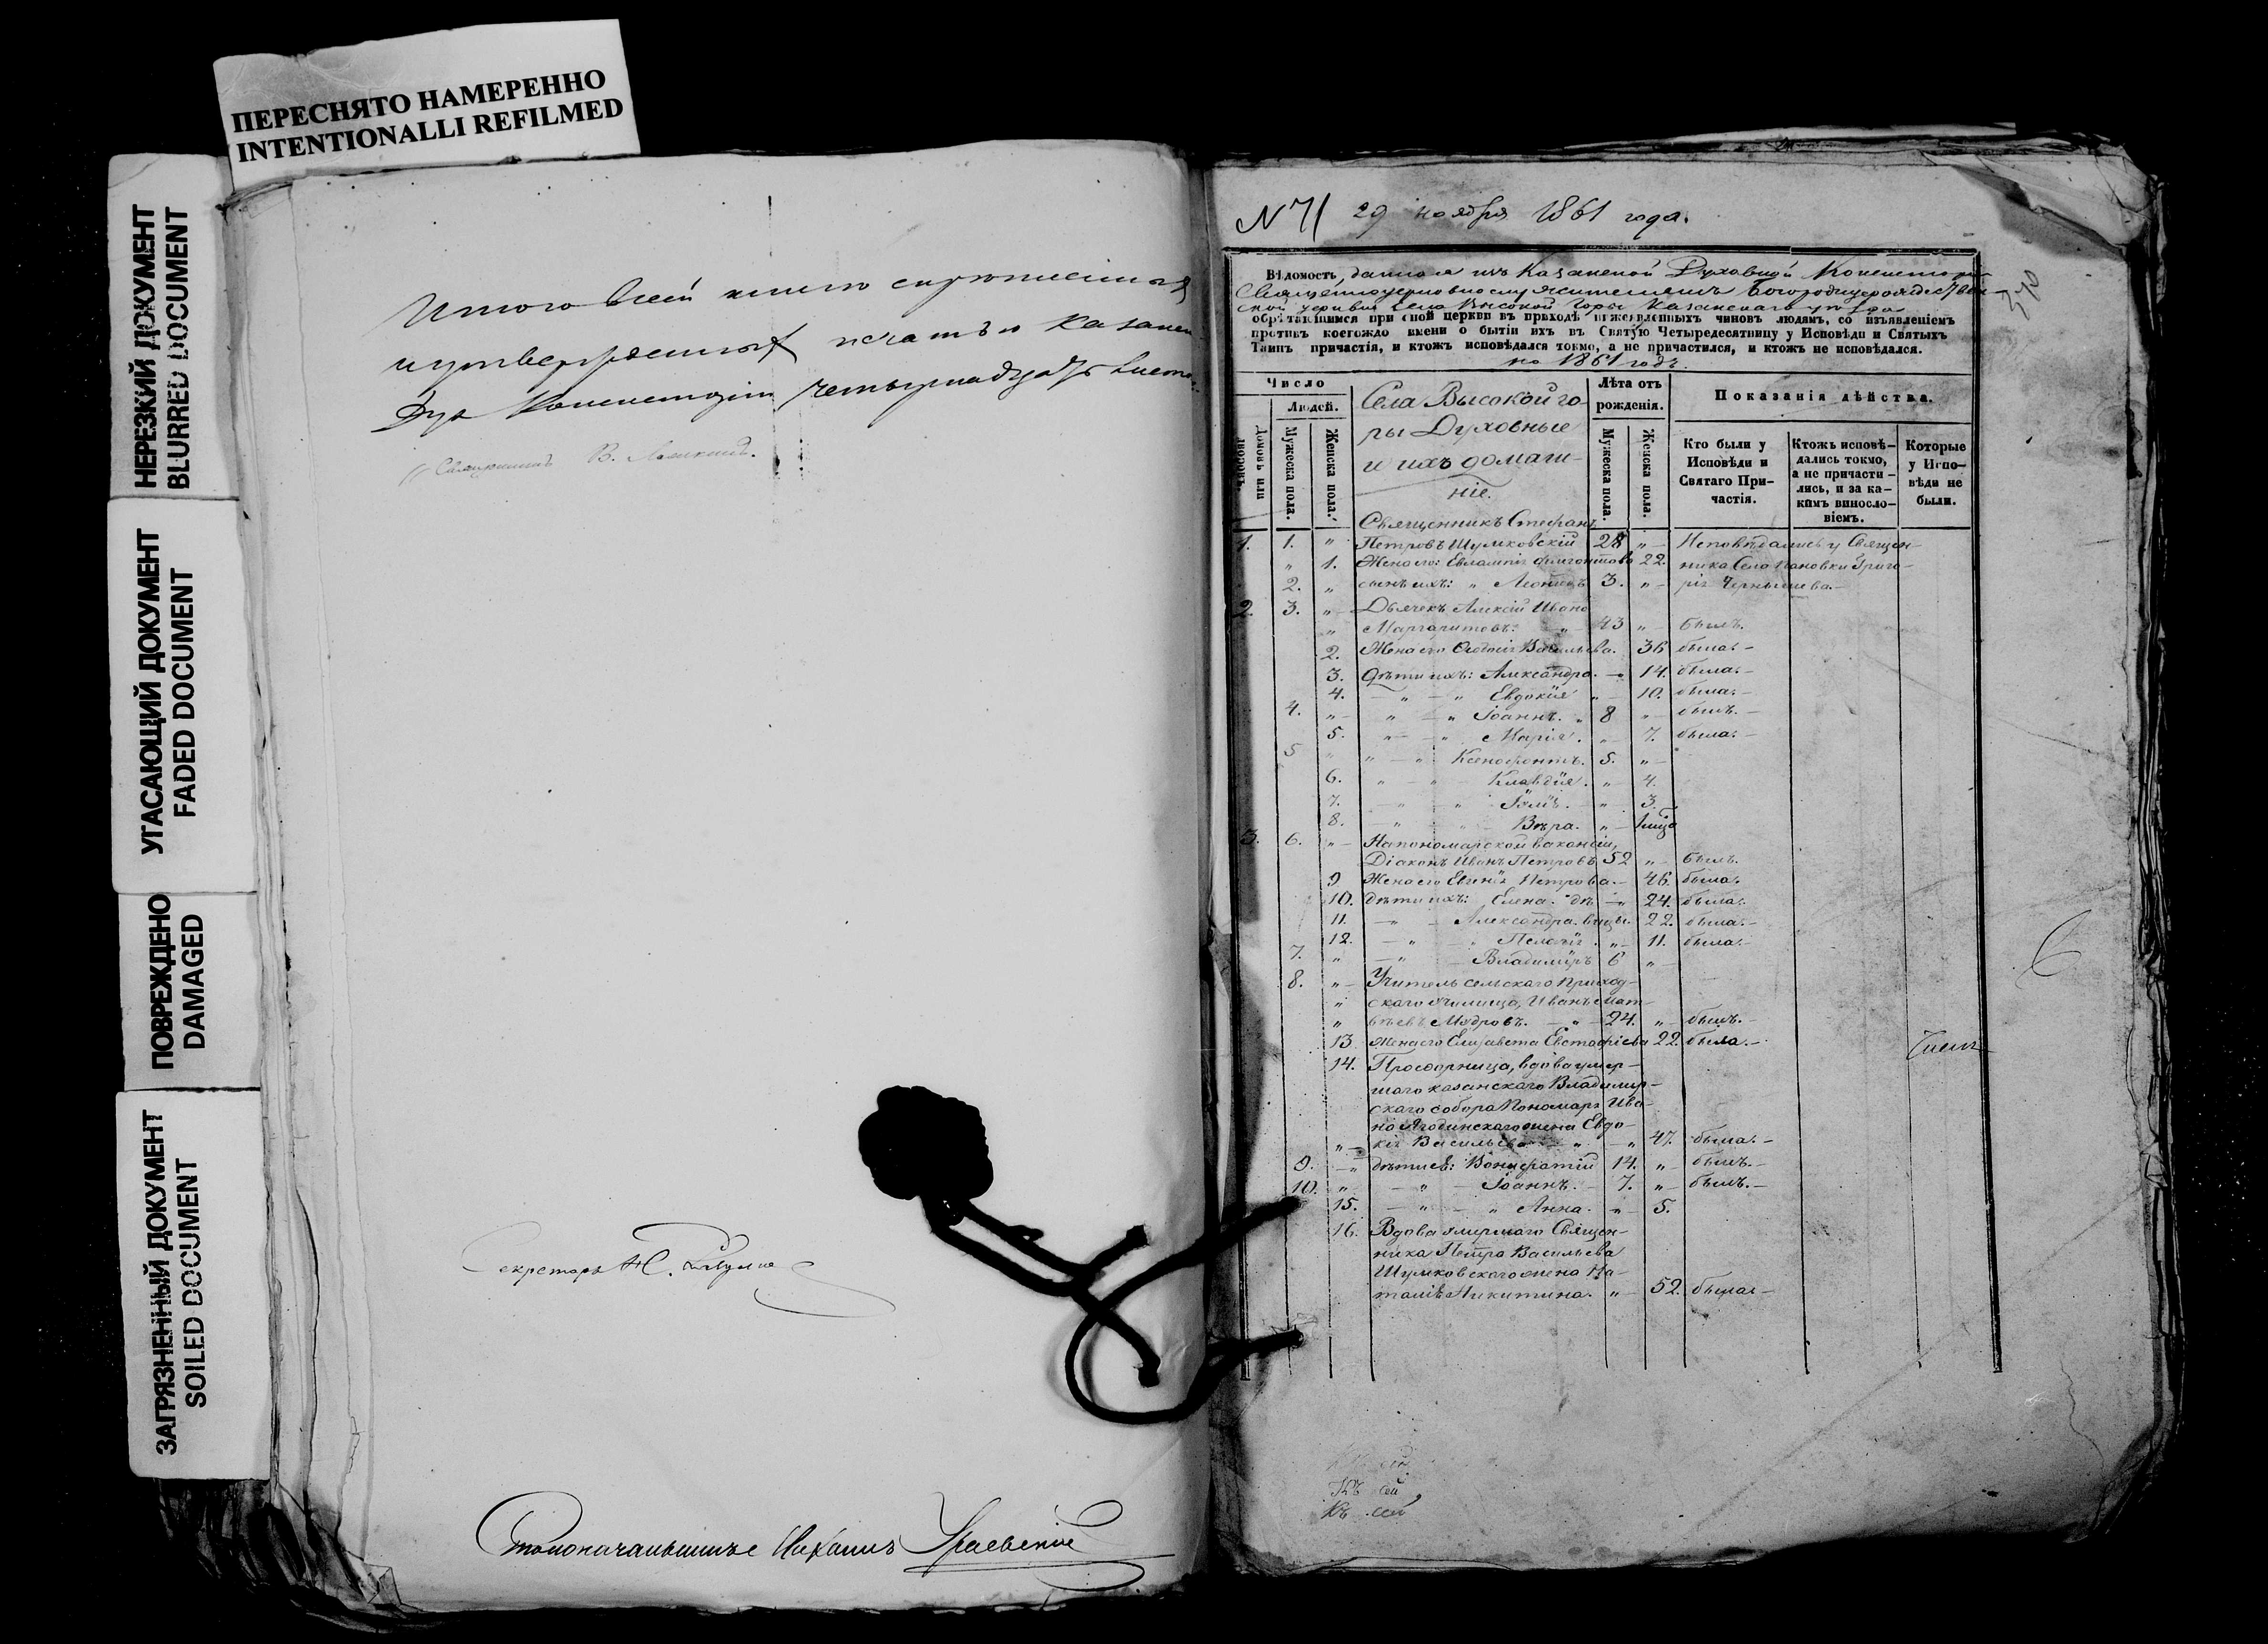 ПЕРЕСНЯТО НАМЕРЕННО
INTENTIONALLI REFILMED
НЕРЕЗКИЙ ДОКУМЕНТ
BLURRED DOCUMENT
УГАСАЮЩИЙ ДОКУМЕНТ
FADED DOCUMENT
ПОВРЕЖДЕНО
DAMAGED
ЗАГРЯЗНЕННЫЙ ДОКУМЕНТ
SOILED DOCUMENT
Итого всей книги
печатью Казанск
Дух Консисторіи четырнадцать
Священникъ В.
Секретарь
Столоначальникъ
№ 71 29 ноября 1861 года.
Вѣдомость, данная изъ Казанской Духовной Консисторіи
Священноцерковнослужителямъ Богородицерождествен-
ской церкви села Высокой Горы Казанскаго уѣзда
обрѣтающимся при оной церкви въ приходѣ нижеявленныхъ чиновъ людямъ, со изъявленіемъ
противъ коегождо имени о бытіи ихъ въ Святую Четыредесятницу у Исповѣди и Святыхъ
Таинъ причастія, и ктожъ исповѣдался токмо, а не причастился, и ктожъ не исповѣдался.
на 1861 годъ.
Число
Людей.
Домовъ или
Мужеска пола.
Женска пола.
Села Высокой Го-
ры Духовные
и ихъ домаш-
ніе.
Лѣта отъ рожденія.
Мужеска пола.
Женска пола.
Показанія дѣйства.
Кто были у Исповѣди и Святаго При-частія.
Ктожъ исповѣ-дались токмо, а не причасти-лись, и за ка-кимъ винословіемъ.
Которые у Испо-вѣди не были.
Священникъ Стефанъ
1. 1. " Петровъ Шумковскій 28 " Исповѣдались у Священ-
" 1. Жена его: Евлампія 22. ника Села Пановки Григо-
2. " сынъ ихъ: " Леонидъ 3. " рія Чернышева.
2. 3. " Дьячекъ Алексій Ивано
" Маргаритовъ: " 43 " былъ.
2. Жена его Васильева. 36 была.
3. Дѣти ихъ: Александра. " 14. была.
4. " " Евдокія " 10. была.
4. " " " Іоаннъ. " 8 " былъ.
5. " " Марія. " 7. была.
5 " " " Ксенофонтъ. 5. "
6. " " Клавдія. " 4.
7. " " Юлія. " 3.
8. " " Вѣра. "
3. 6. " На пономарской вакансіи,
Діаконъ Иванъ Петровъ 52 " былъ.
9 Жена его Евгенія Петрова. 46. была.
10. дѣти ихъ: Елена. дѣ " 24. была.
11. " Александра. вицы. 22. была.
12. " Пелагія. " 11. была.
7. " " Владиміръ 6 "
8. " Учитель сельскаго приход-
" скаго училища, Иванъ Мат-
" вѣевъ Мудровъ. " 24. " былъ.
13. Жена его Елизавета Евстафіева 22. была.
14. Просфорница, вдова умер-
шаго казанскаго Владимир-
скаго собора Пономаря Ива-
на Ягодинскаго жена Евдо-
" кія Васильева " " 47. была.
9. " дѣти ея: Вонифатій 14. " былъ.
10. " " Іоаннъ. 7. " былъ.
15. " " Анна. " 5.
16. Вдова умершаго Священ-
ника Петра Васильева
Шумковскаго жена На-
талія Никитина. " 52. была.
Къ сей
Къ сей